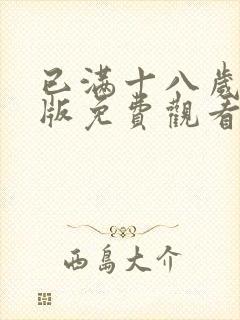 已滿十八歲
版免費觀看
西島大介